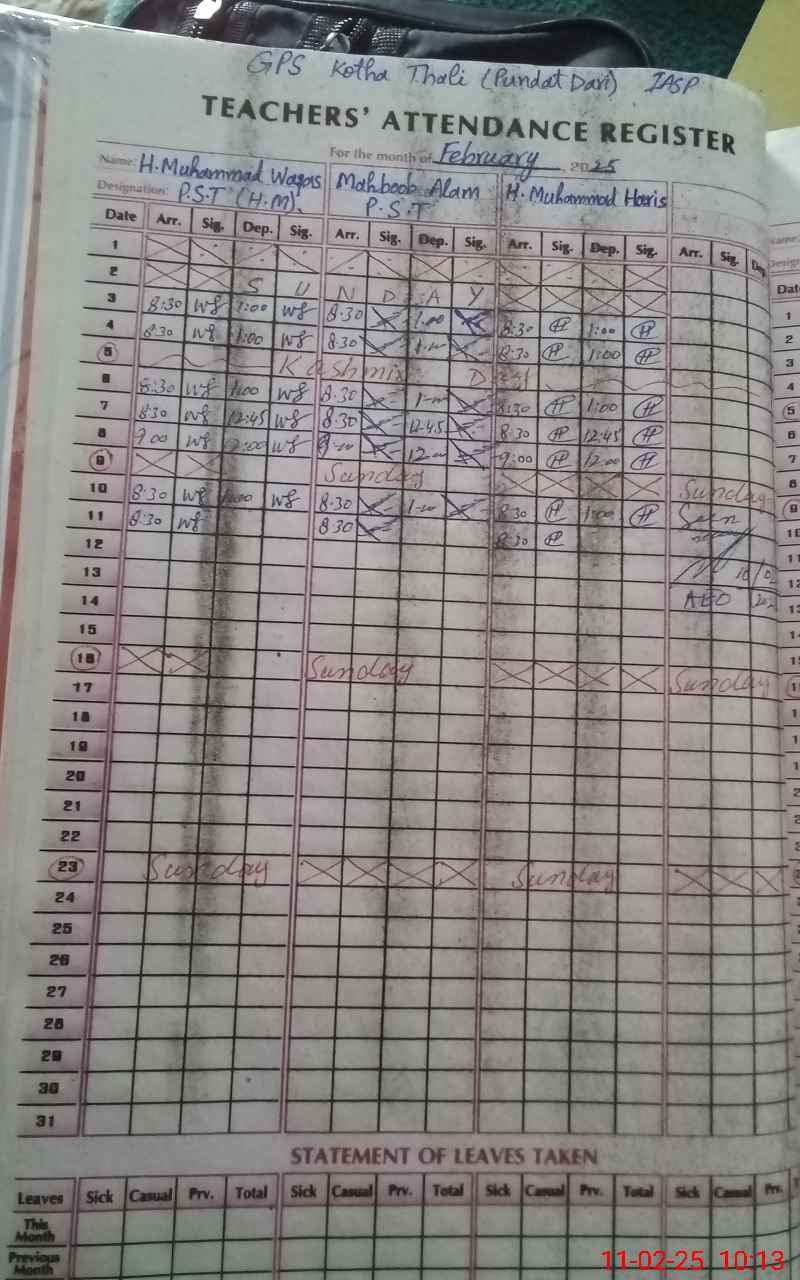 GPS Kotha Thali (Pundat Dari) IASP
TEACHERS' ATTENDANCE REGISTER
For the month of February, 2025
Name: H. Muhammad Waqas Mahboob Alam H. Muhammad Haris
Designation: P.S.T (H.M). P.S.T
Date Arr. Sig. Dep. Sig. Arr. Sig. Dep. Sig. Arr. Sig. Dep. Sig. Arr. Sig. Dep
1
2 S U N D A Y
3 8:30 1:00 8:30 1:00 8:30 1:00
4 8:30 1:00 8:30 1:00 8:30 1:00
5 Kashmir Day
6 8:30 1:00 8:30 1:00 8:30 1:00
7 8:30 12:45 8:30 12:45 8:30 12:45
8 9:00 12:00 9:00 12:00 9:00 12:00
9 Sunday Sunday
10 8:30 1:00 8:30 1:00 8:30 1:00 Seen
11 8:30 8:30 8:30
12
13
14 AEO
15
16 Sunday Sunday
17
18
19
20
21
22
23 Sunday Sunday
24
25
26
27
28
29
30
31
STATEMENT OF LEAVES TAKEN
Leaves Sick Casual Prv. Total Sick Casual Prv. Total Sick Casual Prv. Total Sick Casual Prv.
This Month
Previous Month
11-02-25 10:13